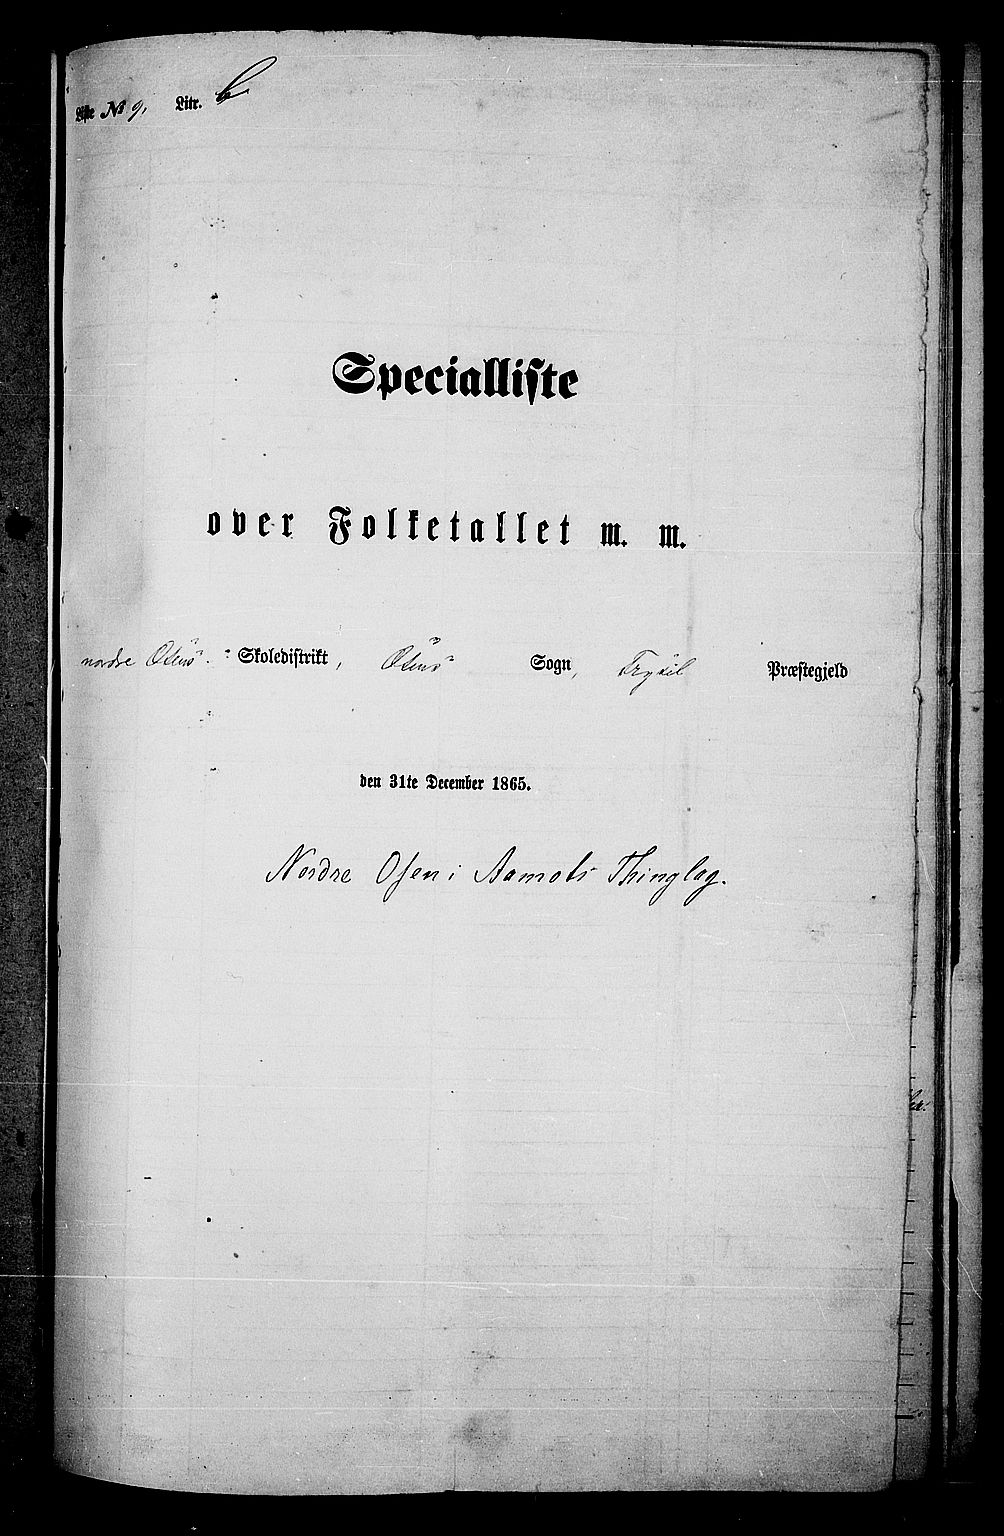 Liste No 9, Litr. b
Specialliste
over Folketallet m. m.
nordre Osens Skoledistrikt, Osens Sogn, Trysil Præstegjeld
den 31te December 1865.
Nordre Osen i Aamots Thinglag.